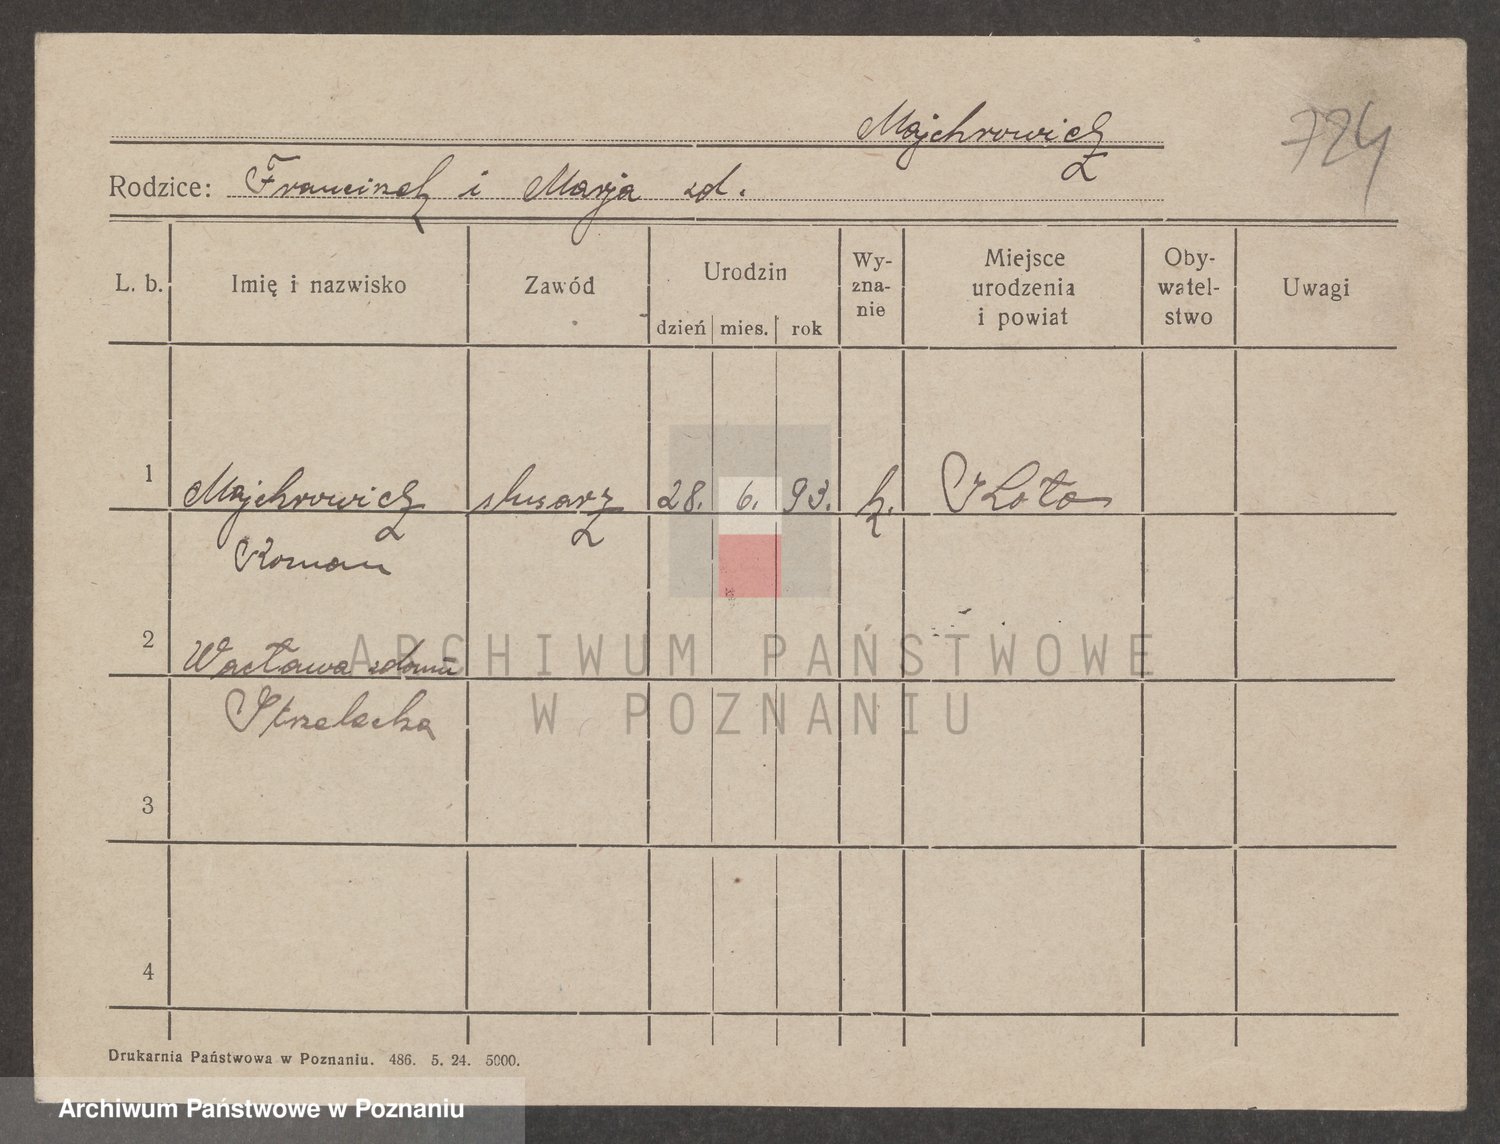 Majchrowicz
724
Rodzice: Franciszek i Marja zd.
L. b. Imię i nazwisko Zawód Urodzin dzień mies. rok Wy-zna-nie Miejsce urodzenia i powiat Oby-watel-stwo Uwagi
1 Majchrowicz ślusarz 28. 6. 93. k.
Roman
2 Wacława zdomu
Strzelecka
3
4
ARCHIWUM PAŃSTWOWE
W POZNANIU
Drukarnia Państwowa w Poznaniu. 486. 5. 24. 5000.
Archiwum Państwowe w Poznaniu